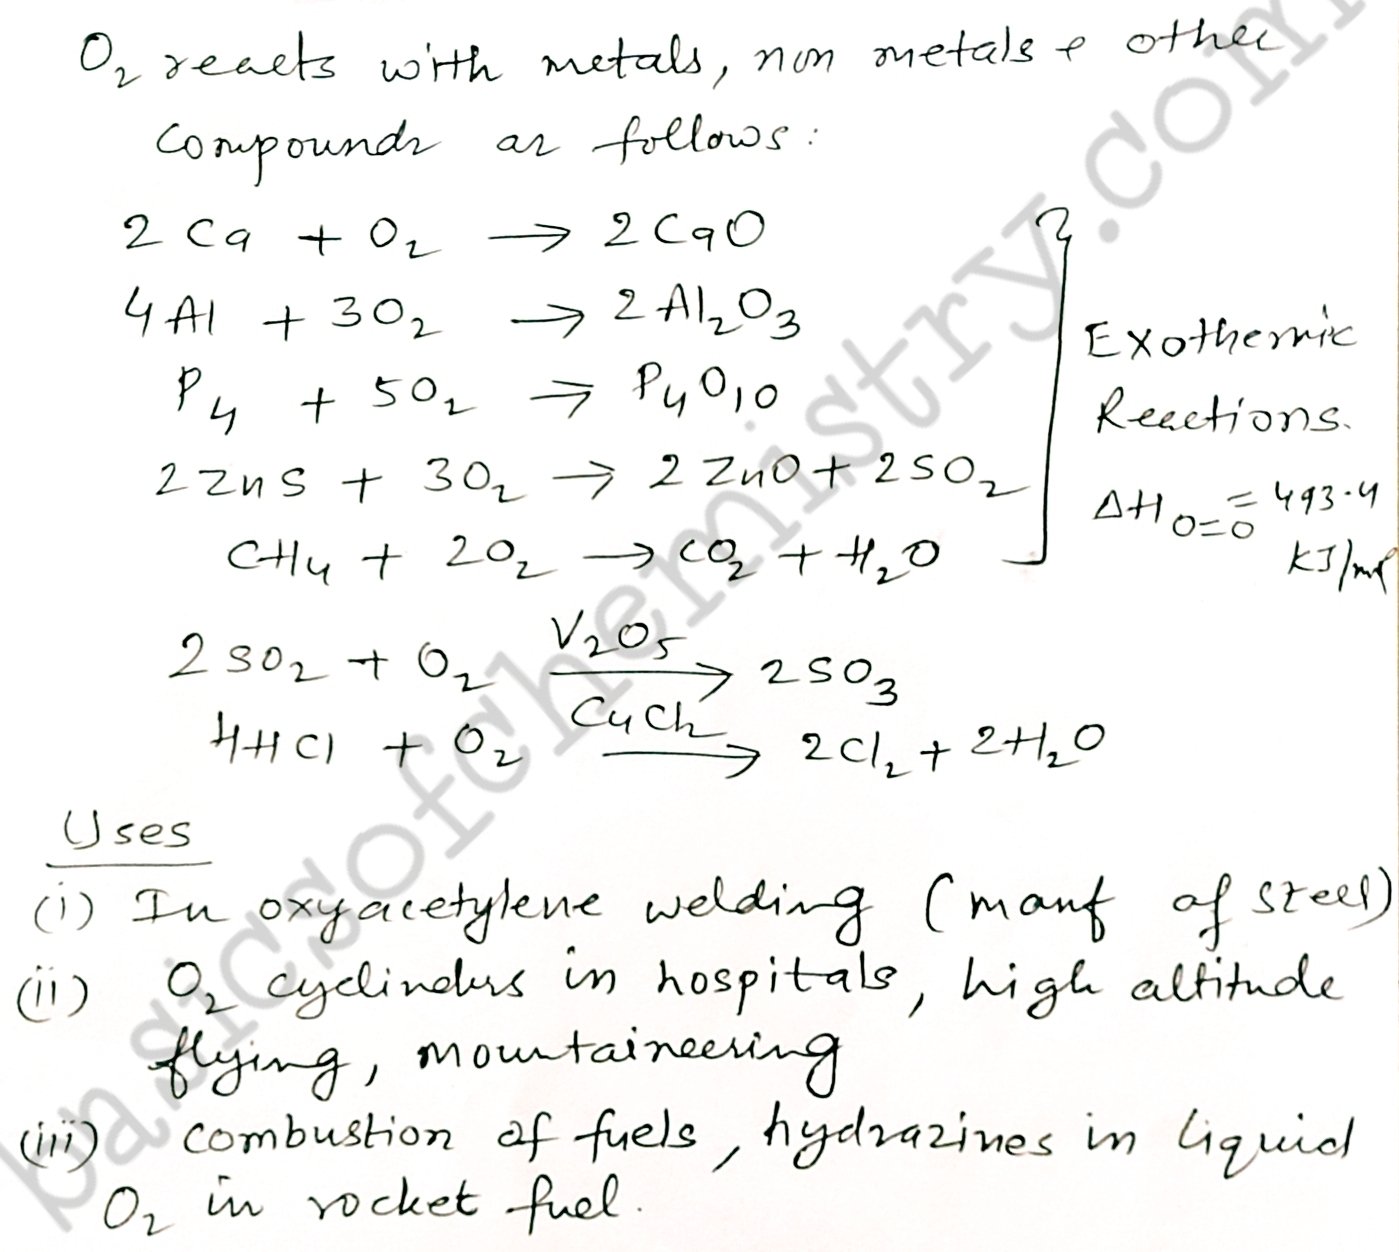 O₂ reacts with metals, non metals & other
compounds as follows:
2Ca + O₂ → 2CaO
4Al + 3O₂ → 2Al₂O₃
P₄ + 5O₂ → P₄O₁₀
2ZnS + 3O₂ → 2ZnO + 2SO₂
CH₄ + 2O₂ → CO₂ + H₂O
Exothermic
Reactions.
ΔH O=O = 493.4
kJ/mol
V₂O₅
2SO₂ + O₂ → 2SO₃
CuCl₂
4HCl + O₂ → 2Cl₂ + 2H₂O
Uses
(i) In oxyacetylene welding (manf of steel)
(ii) O₂ cyclinders in hospitals, high altitude
flying, mountaineering
(iii) combustion of fuels, hydrazines in liquid
O₂ in rocket fuel.
basicsofchemistry.com